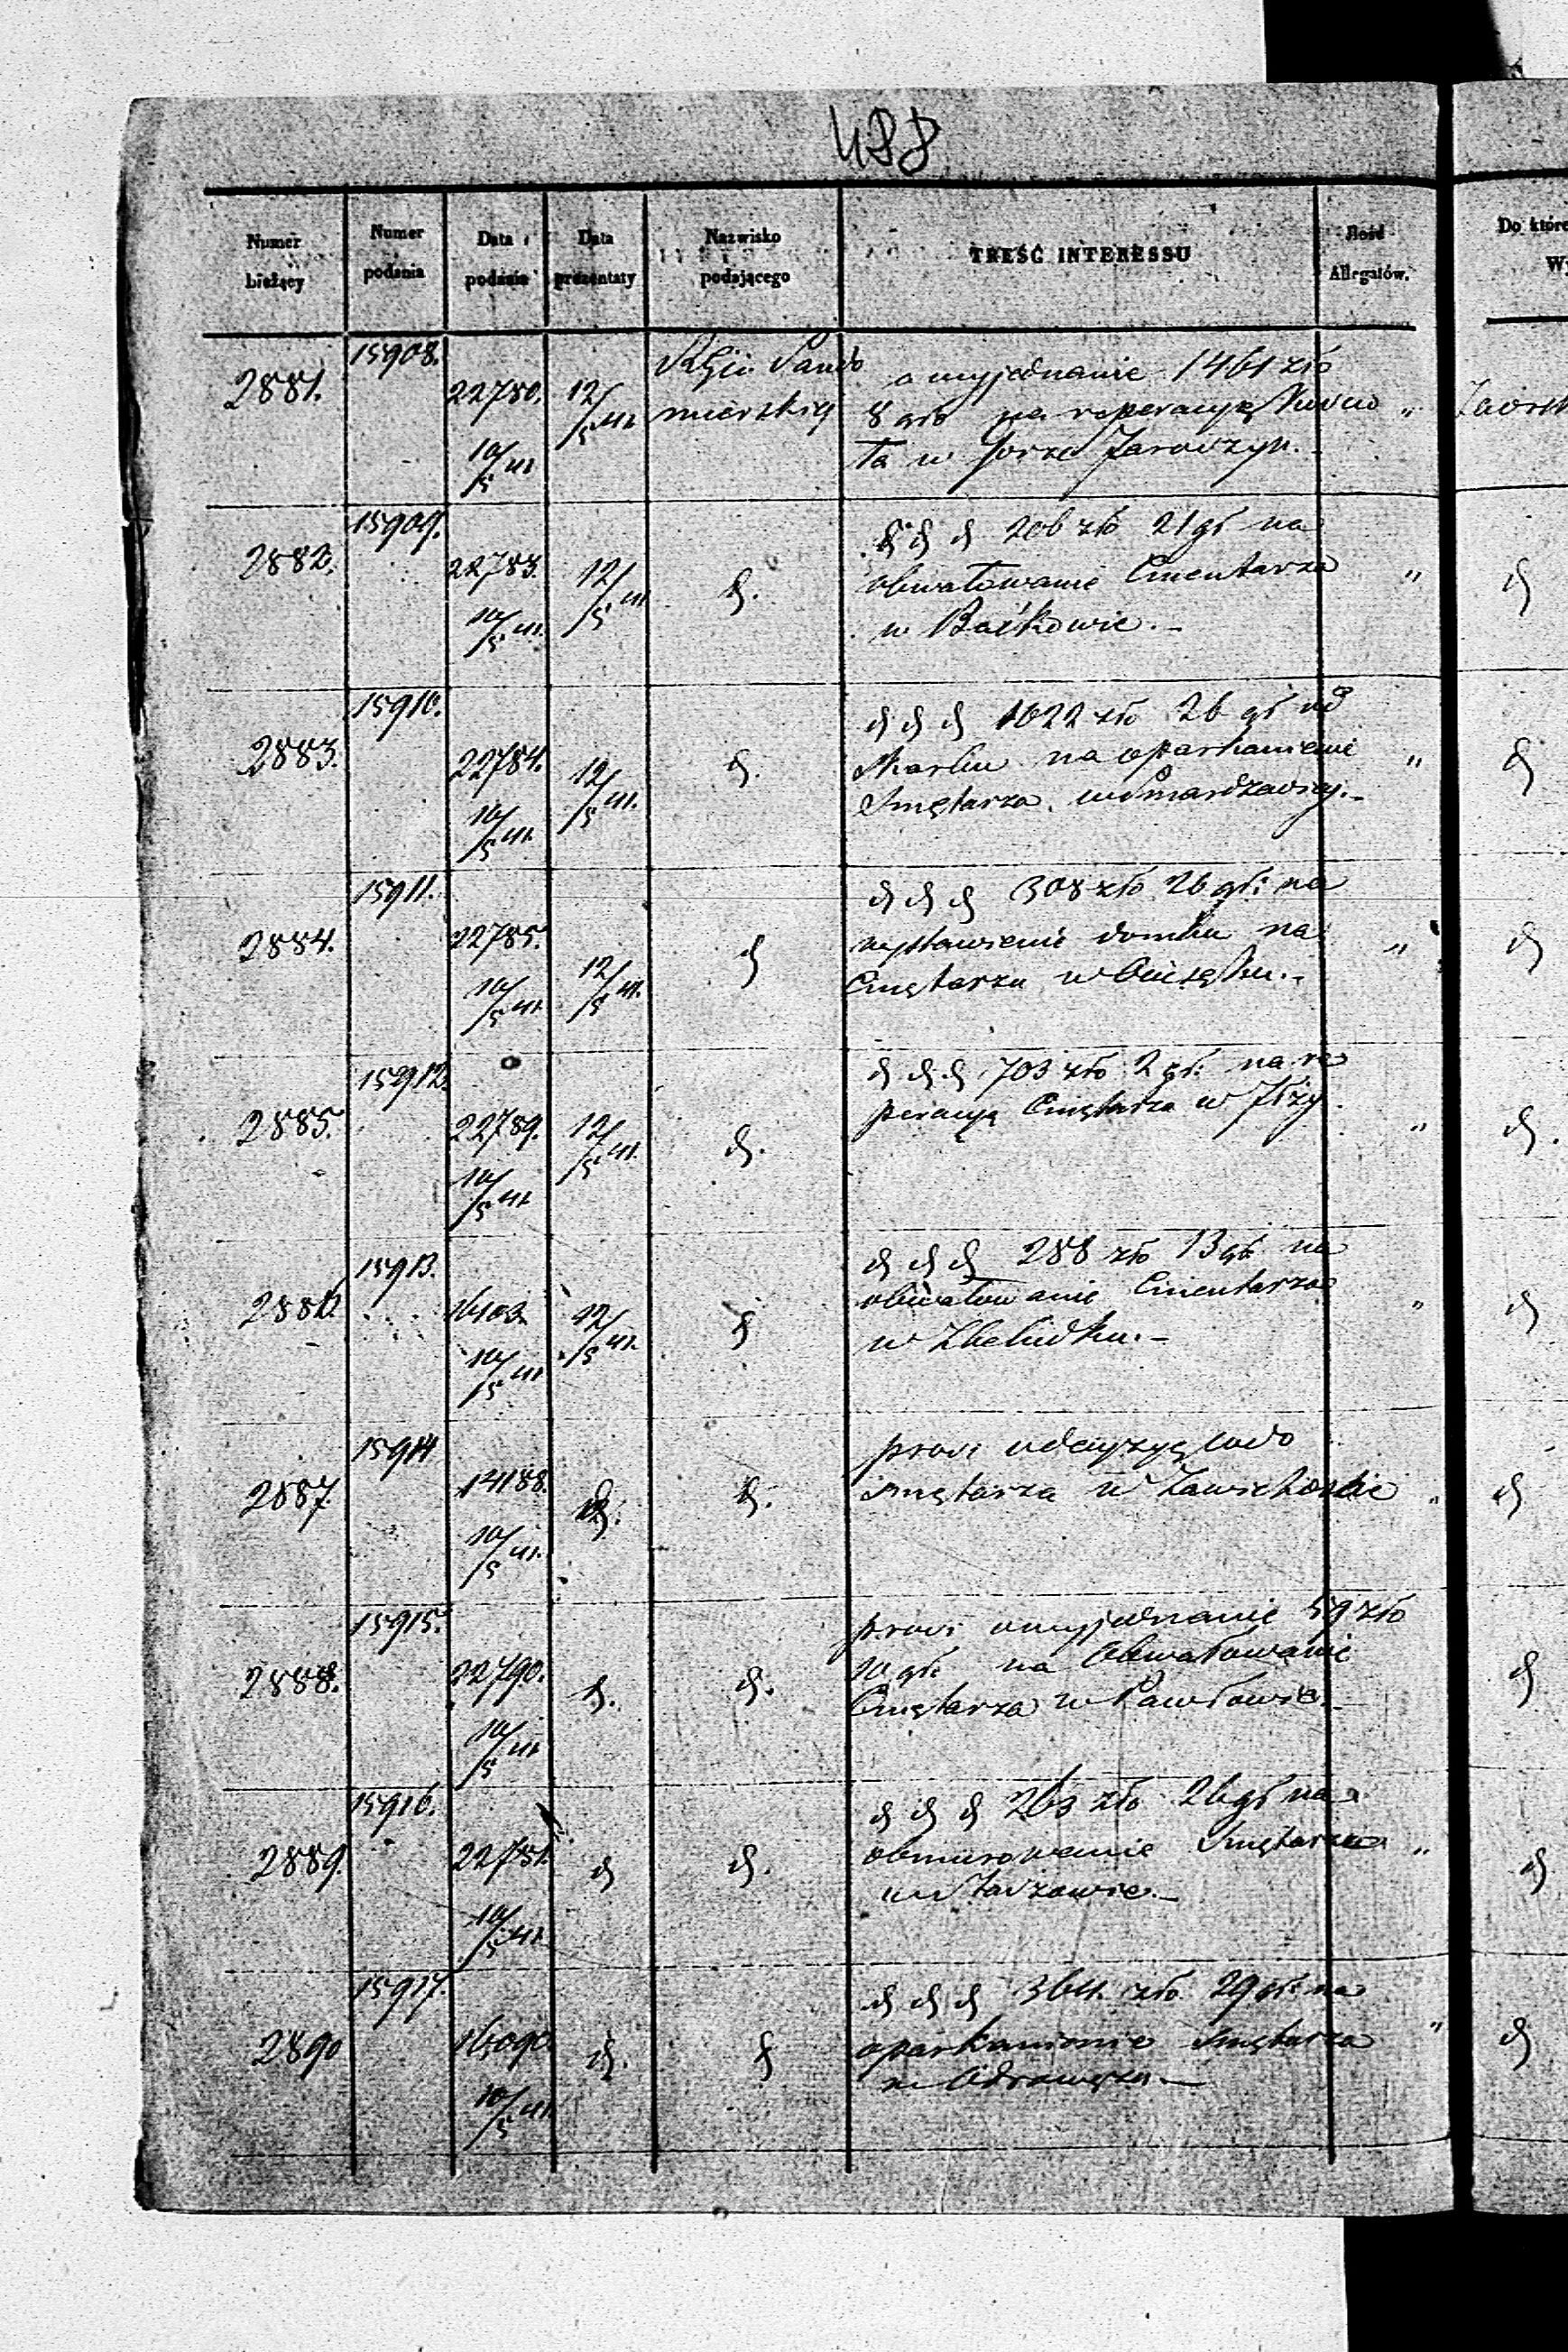 488
Numer bieżący
Numer podania
Data podania
Data prezentaty
Nazwisko podającego
TREŚĆ INTERESSU
Ilość Allegatów.
Do które
Wy
2881. 15908. 22780. 10/5 41 12/5 41 Sando
mierskiej
o wyjednanie 1461 złto
8 gro na reperacyę
ta w Jarowzyn.
2882. 15909. 22783. 10/5 41. 12/5 41 d.
d d d 206 złto 21 gł na
obwałowanie Cmentarza
w Baćkowie.-
2883. 15910. 22784. 10/5 41. 12/5 41. d.
d d d 1622 złto 26 gł od
Skarbu na oparkanienie
Smętarza.
2884. 15911. 22785. 10/5 41. 12/5 41. d
d d d 308 złto 26 gł: na
wystawienie domku na
Cmętarzu w
2885. 15912. 22789. 10/5 41 12/5 41. d.
d d d 703 złto 2 gł: na re
peracyą Cmętarza w Iłży
2886. 15913. 16103. 10/5 41 12/5 41. d
d d d 288 złto 13 gł. na
obwałowanie Cmentarza
w
2887. 15914 14188. 10/5 41. d. d.
prosi o decyzyę codo
smętarza w Zawichoście
2888. 15915. 22790. 10/5 41 d. d.
prosi o wyjednanie 59 złto
10 gł: na Obwałowanie
Cmętarza w Pawłowie.-
2889. 15916. 22781. 10/5 41. d d.
d d d 263 złto 26 gł na
obmurowanie Smętarza
w
2890 15917. 16090. 10/5 41. d. d
d d d 364. złto 29 gł: na
oparkanienie Smętarza
w Odrowążu.-